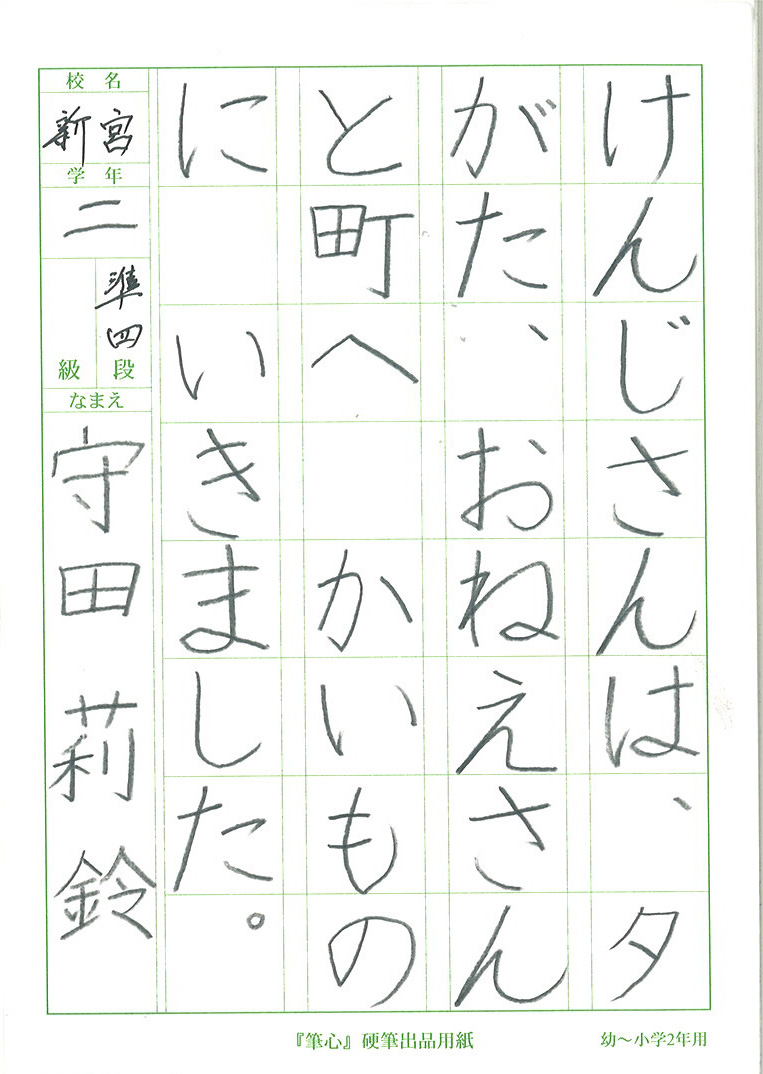 けんじさんは、夕
がた、おねえさん
と町へ かいもの
に いきました。
校名
新宮
学年
二
準四
段
級
なまえ
守田 莉鈴
『筆心』硬筆出品用紙
幼～小学2年用